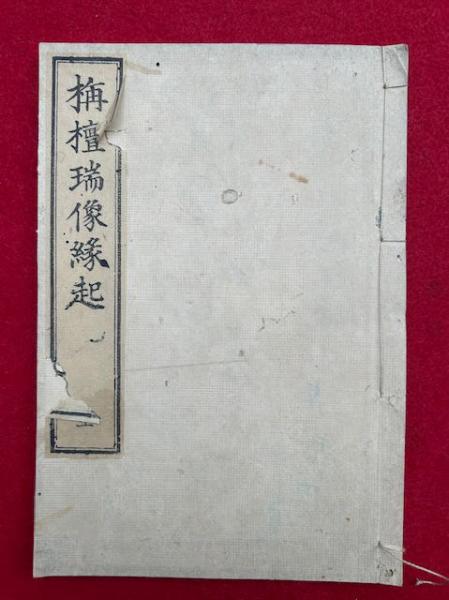 栴檀瑞像緣起